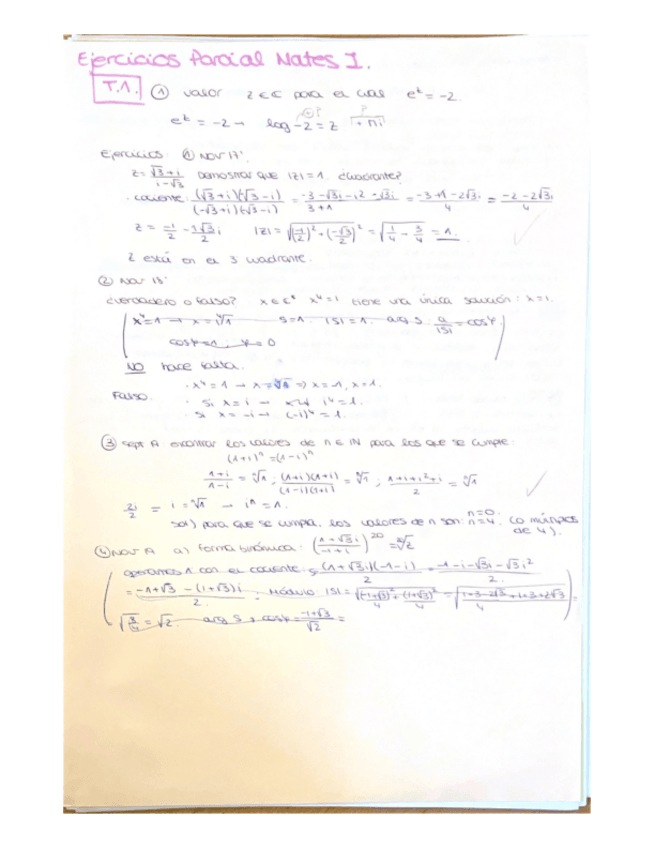 Ejercicios Parcial Mates I.
T.1. ① valor z ∈ C para el cual e^z = -2.
e^z = -2 → log -2 = z + πi
Ejercicios: ① Nov 17'.
z = (√3+i)/(i-√3) Demostrar que |z| = 1. ¿Cuadrante?
· cociente: (√3+i)(-√3-i)/(-√3+i)(-√3-i) = (-3-√3i-i²-√3i)/(3+1) = (-3+1-2√3i)/4 = (-2-2√3i)/4
z = -1/2 - 1√3/2 i |z| = √((-1/2)²+(-√3/2)²) = √(1/4 - 3/4) = 1.
z está en el 3 cuadrante.
② Nov 18'
¿verdadero o falso? x⁴=1 tiene una única solución: x=1.
x⁴=1 → x = ⁴√1 S=1. |S|=1. arg S: a/|S| = cosφ
cosφ=1, φ=0
NO hace falta.
· x⁴=1 → x=⁴√1 => x=-1, x=1.
Falso. · Si x=i → i⁴=1.
· Si x=-i → (-i)⁴=1.
③ Sept A. encontrar los valores de n ∈ IN para los que se cumple:
(1+i)ⁿ = (1-i)ⁿ
(1+i)/(1-i) = ⁿ√1 ; (1+i)(1+i)/(1-i)(1+i) = ⁿ√1 ; (1+i+i²+i)/2 = ⁿ√1
2i/2 = i = ⁿ√1 → iⁿ = 1. n=0.
Sol) para que se cumpla, los valores de n son: n=4. (o múltiplos
de 4).
④ Nov A a) forma binómica: ((1+√3i)/(-1+i))^20
operamos 1 con el cociente: (1+√3i)(-1-i)/2 = (-1-i-√3i-√3i²)/2.
= (-1+√3-(1+√3)i)/2. Módulo: |S| = √((-1+√3)²/4+(1+√3)²/4) = √((1+3-2√3+1+3+2√3)/4) =
= √2. arg S → cosφ = (-1+√3)/√2 =